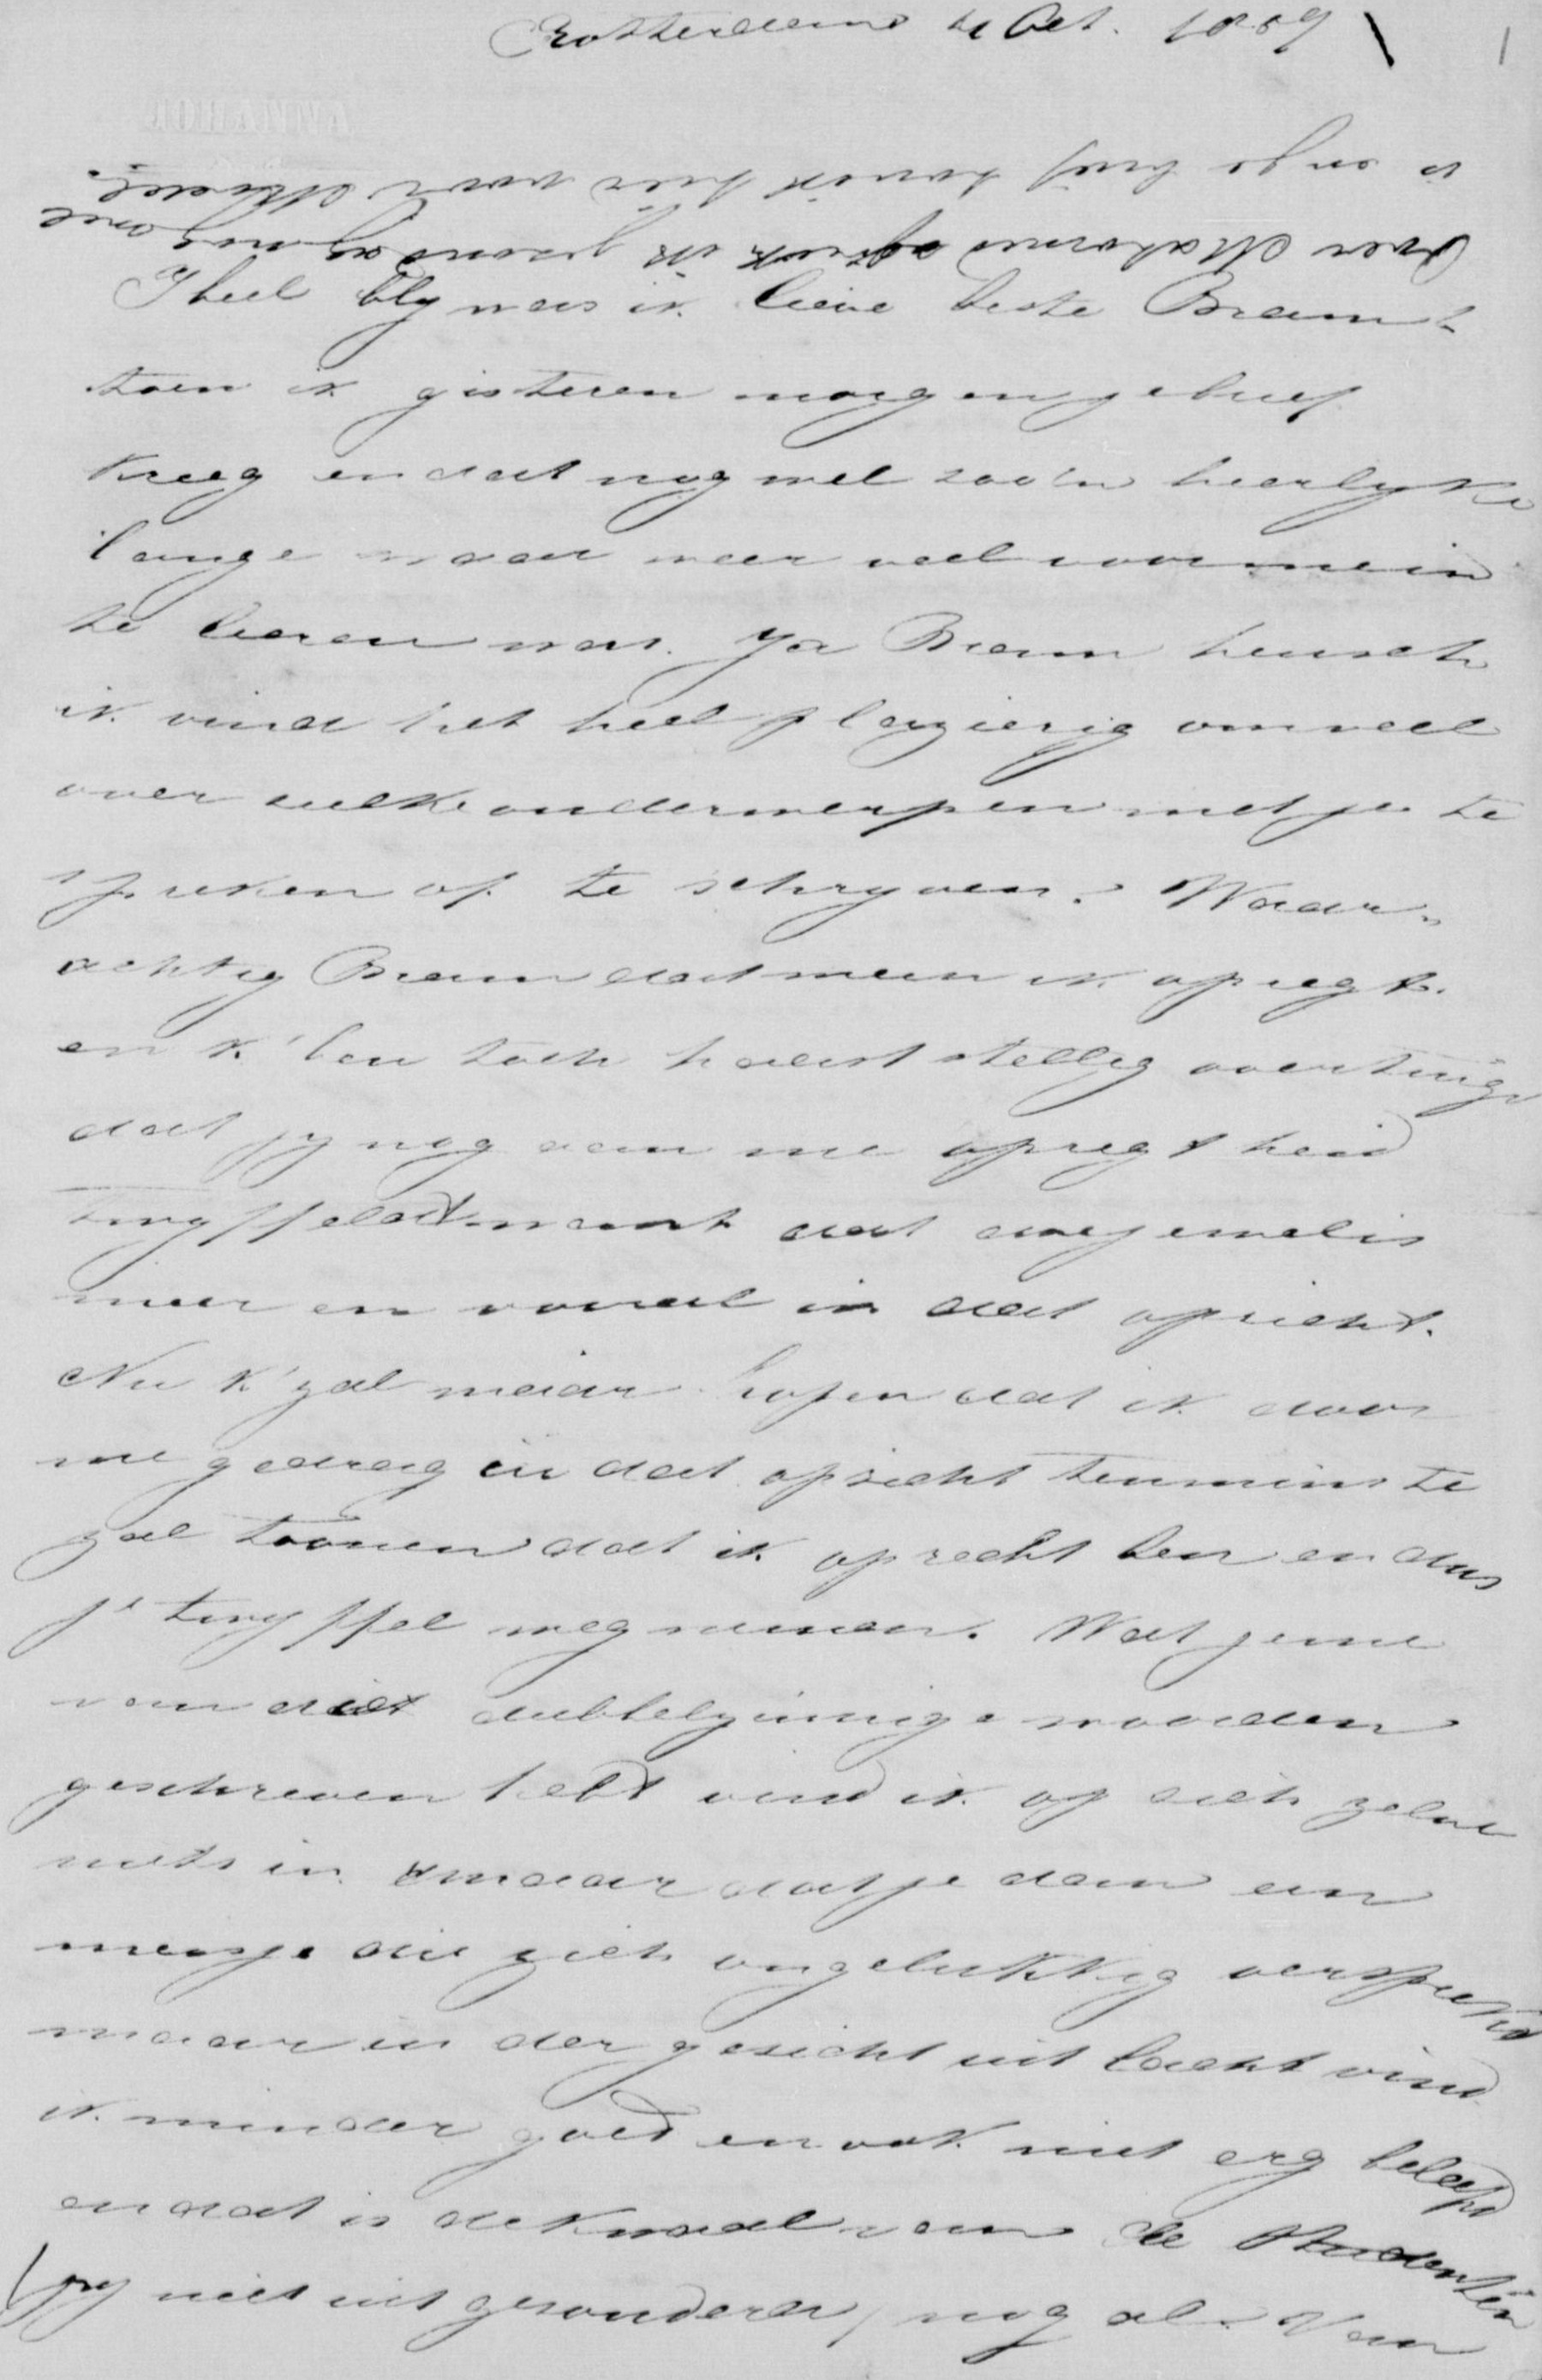 Rotterdam 4 Oct. 1869
Heel bly was ik lieve beste Bram
toen ik gisteren morgen je brief
kreeg en dat nog wel zoo'n heerlyke
lange waar weer veel voor me in
te leeren was. Ja Bram heusch
ik vind het heel plezierig om veel
over zulke onderwerpen met je te
spreken of te schryven. Waar-
achtig Bram dat meen ik opregt.
en k'ben toch haast stellig overtuigd
dat jy nog aan me opregtheid
twyffeld want dat doe je wel is
meer en vooral in dat opzicht.
Nu k'zal maar hopen dat ik door
me gedrag in dat opzicht tenminste
zal toonen dat ik oprecht ben en dus
je twyffel wegnemen. Wat je me
van die dubbelzinnige woorden
geschreven hebt vind ik op zich zelve
niets in maar dat je dan een
meisje die zich ongelukkig verspreekt
maar in der gezicht uit lacht vind
ik minder goed en ook niet erg beleefd
en dat is de kwaal van de studenten
jy niet uitgezonderd, nog al. Van